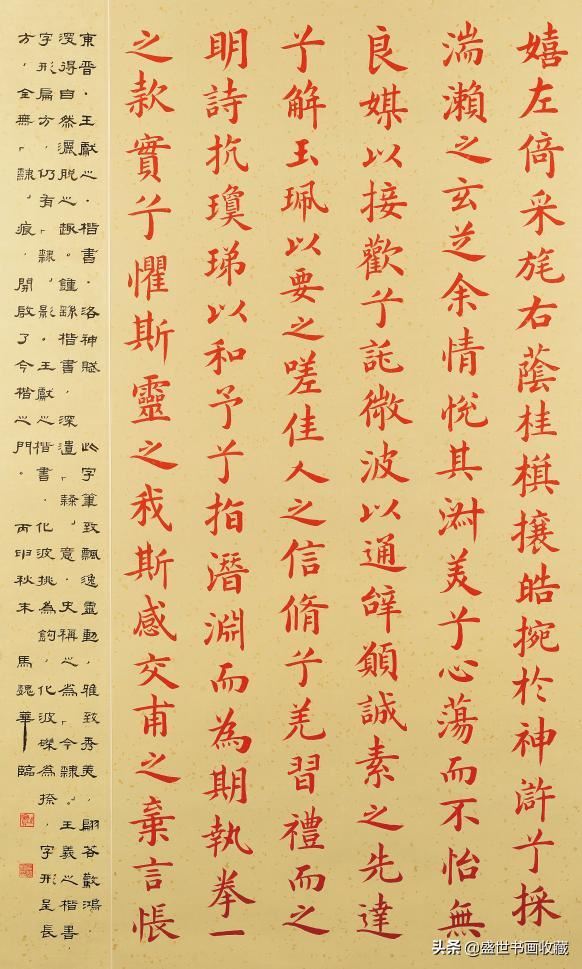 嬉左倚采旄右蔭桂棋攘皓捥於神滸兮採
湍瀨之玄芝余情悅其淑美兮心蕩而不怡無
良媒以接歡兮託微波以通辝願誠素之先達
兮解玉珮以要之嗟佳人之信脩兮羌習禮而之
明詩抗瓊珶以和予兮指潛淵而為期執拳一
之款實兮懼斯靈之我斯感交甫之棄言悵
東晉·王獻之·楷書·洛神賦 此字筆致飄逸靈動,雅致秀美,翩若驚鴻,
深得自然灑脫之趣。鍾繇楷書,深遺「隸」意·史稱之為「今隸」。王羲之楷書
字形扁方,仍有「隸」影。王獻之楷書,化波挑為鉤,化波磔為捺,字形呈長
方,全無「隸」痕,開啟了今楷之門。 丙申秋末 馬魏華臨
头条 @盛世书画收藏